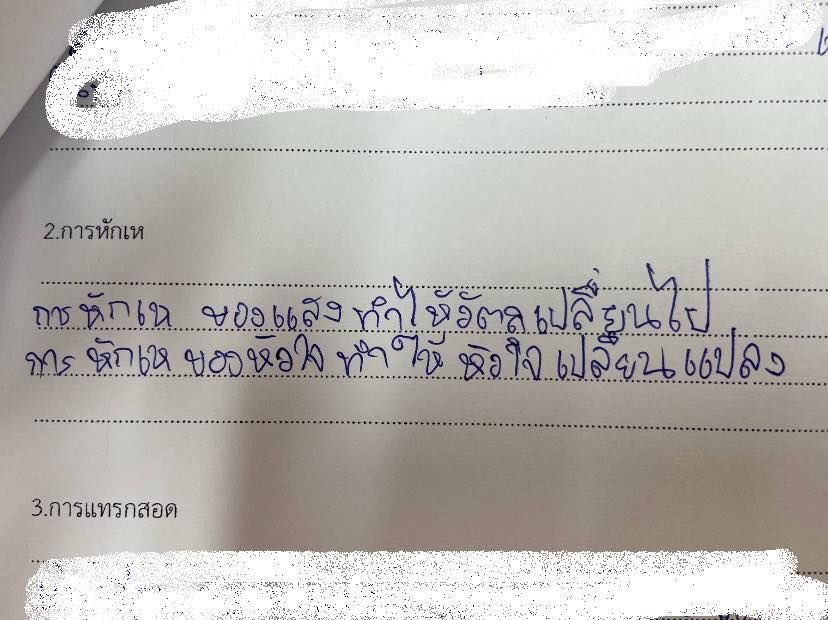 2.การหักเห
การหักเห ของแสง ทำให้วัตถุเปลี่ยนไป
การ หักเห ของหัวใจ ทำให้ หัวใจ เปลี่ยนแปลง
3.การแทรกสอด